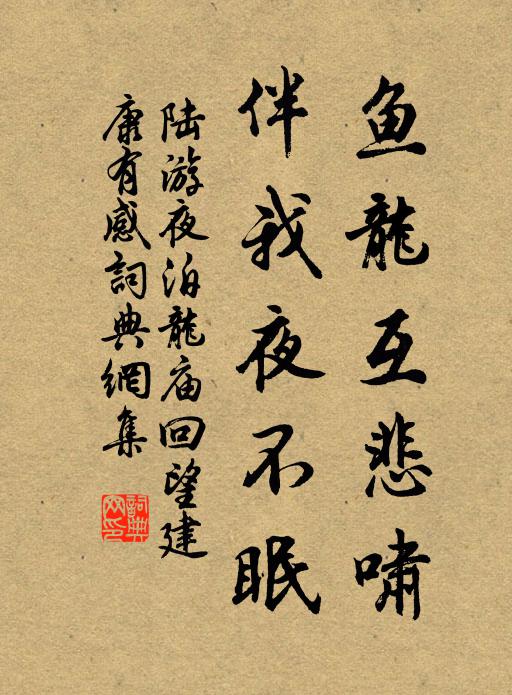 鱼龍互悲啸
伴我夜不眠
陆游夜泊龍庙回望建
康有感詞典網集
詞典網印